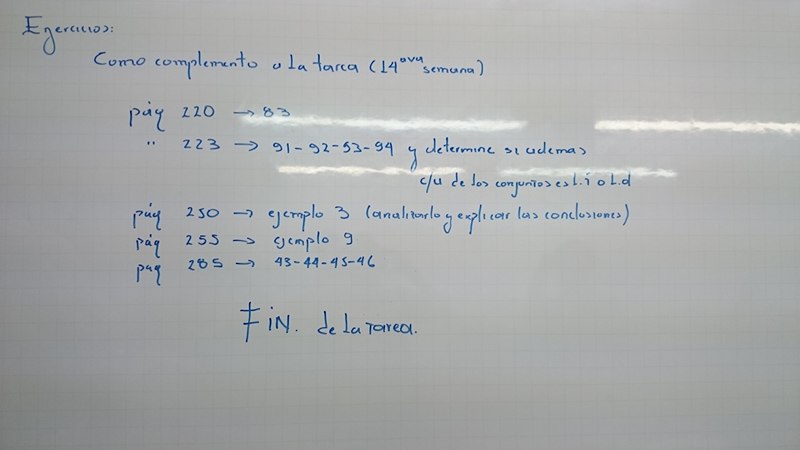 Ejercicios:
Como complemento a la tarea (14ava semana)
pág 220 → 83
" 223 → 91-92-93-94 y determine si ademas
c/u de los conjuntos es L.i o L.d
pág 250 → ejemplo 3 (analizarlo y explicar las conclusiones)
pág 255 → ejemplo 9
pag 285 → 43-44-45-46
FiN. de la tarea.